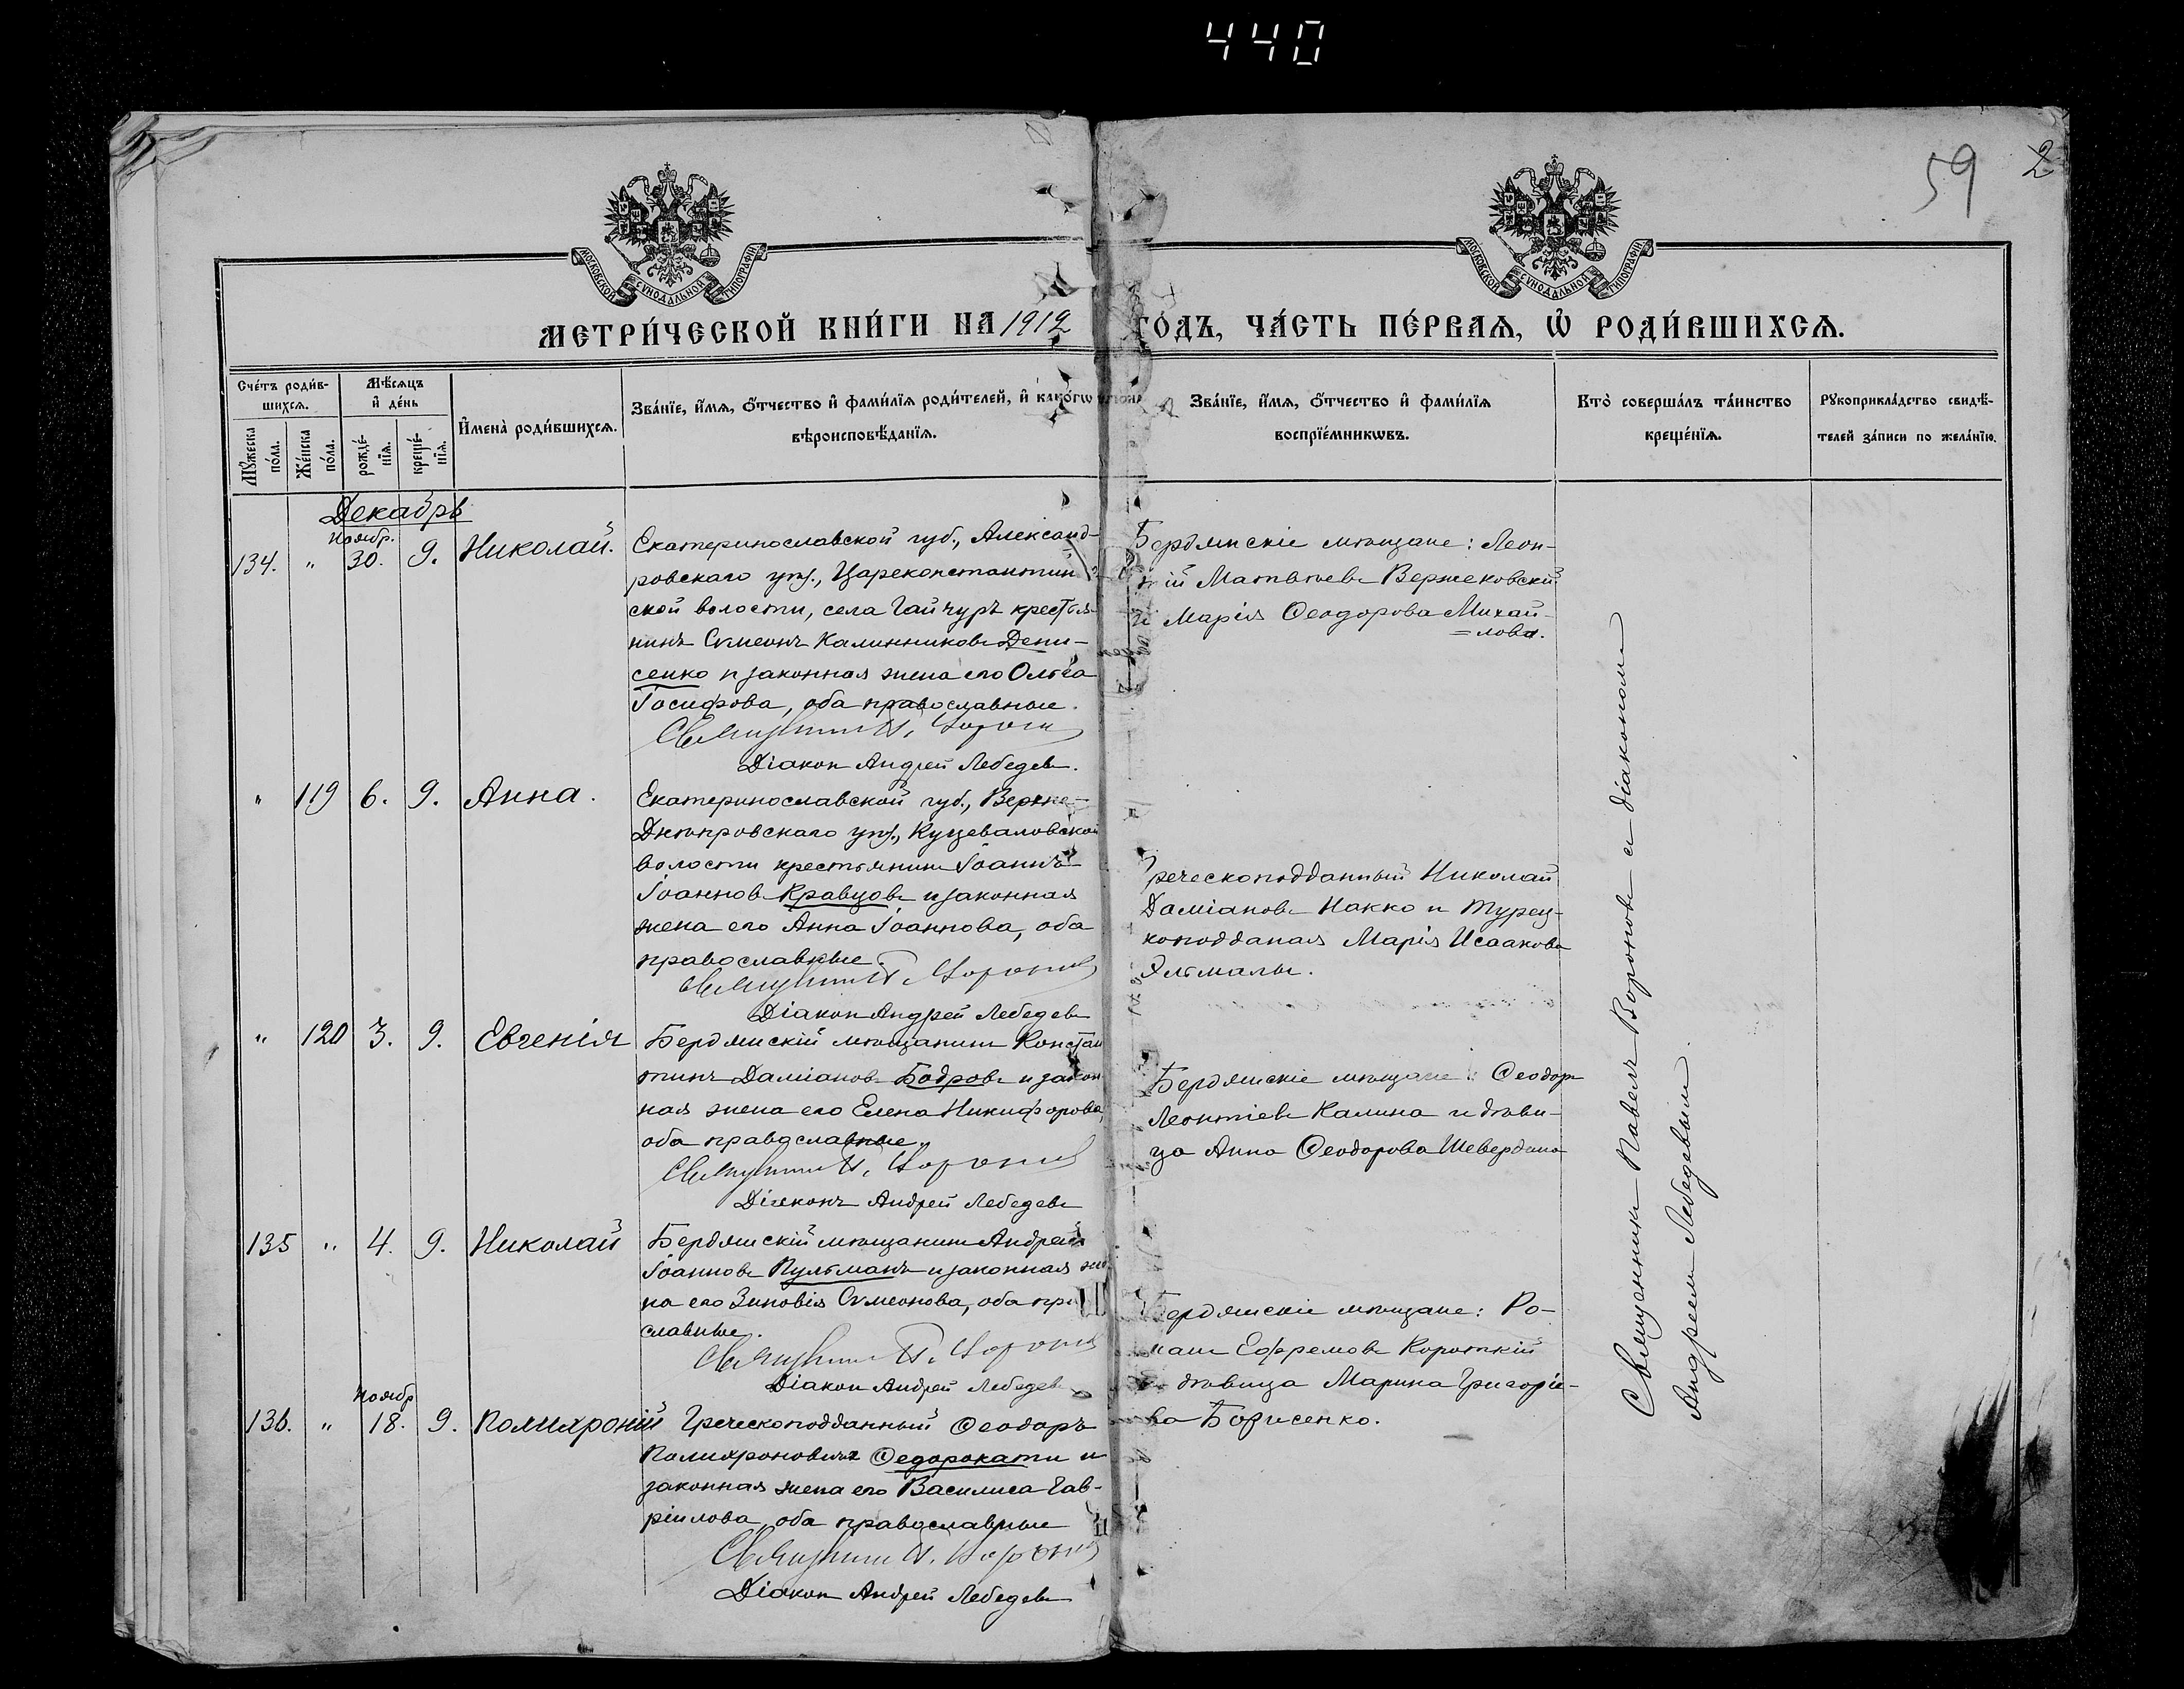 440
59 2
МОСКОВСКОЙ СѴНОДАЛЬНОЙ ТИПОГРАФІИ
МОСКОВСКОЙ СѴНОДАЛЬНОЙ ТИПОГРАФІИ
МЕТРИ́ЧЕСКОЙ КНИ́ГИ НА 1912 ГО́ДЪ, ЧА́СТЬ ПЕ́РВАѦ, Ѡ҆ РОДИ́ВШИХСѦ.
Сче́тъ роди́в-
шихсѧ.
Мѣ́сѧцъ
и҆ де́нь
Мꙋ́жеска
по́ла.
Же́нска
по́ла.
рожде́-
нїѧ.
креще́-
нїѧ.
И҆мена̀ роди́вшихсѧ.
Зва́нїе, и҆́мѧ, ѻ҆́тчество и҆ фами́лїѧ роди́телей, и҆ како́гѡ
вѣроисповѣ́данїѧ.
Зва́нїе, и҆́мѧ, ѻ҆́тчество и҆ фами́лїѧ
воспрїе́мникѡвъ.
Кто̀ соверша́лъ та́инство
креще́нїѧ.
Рꙋкоприкла́дство свидѣ́-
телей за́писи по жела́нїю.
Декабрь
Ноябр.
134. " 30. 9. Николай.
Екатеринославской губ., Александ-
ровскаго уѣз., Цареконстантин
ской волости, села Гайчуръ крестья-
нинъ Сѵмеонъ Калинниковъ Дени-
сенко и законная жена его Ольга
Іосифова, оба православные.
Священникъ П. Вороновъ
Діаконъ Андрей Лебедевъ.
Бердянскіе мѣщане: Леон-
тій Матвѣевъ Вержековскій
и Марія Ѳеодорова Михай-
=лова.
" 119 6. 9. Анна.
Екатеринославской губ., Верхне-
Днѣпровскаго уѣз., Куцеваловской
волости крестьянинъ Іоаннъ
Іоанновъ Кравцовъ и законная
жена его Анна Іоаннова, оба
православные.
Священникъ П. Вороновъ
Діаконъ Андрей Лебедевъ
Греческоподданный Николай
Даміановъ Накко и Турец-
коподданая Марія Исаакова
Эльмалы.
" 120 3. 9. Евгенія
Бердянскій мѣщанинъ Констан
тинъ Даміановъ Бодровъ и закон
ная жена его Елена Никифорова,
оба православные.
Священникъ П. Вороновъ
Діаконъ Андрей Лебедевъ
Бердянскіе мѣщане: Ѳеодоръ
Леонтіевъ Калина и дѣви-
ца Анна Ѳеодорова Шевердина
135 " 4. 9. Николай
Бердянскій мѣщанинъ Андрей
Іоанновъ Пульманъ и законная же
на его Зиновія Сѵмеонова, оба пра
славные.
Священникъ П. Вороновъ
Діаконъ Андрей Лебедевъ
Бердянскіе мѣщане: Ро-
манъ Ефремовъ Короткій
дѣвица Марина Григоріе-
ва Борисенко.
Ноябр
136. " 18. 9. Полихроній
Греческоподданный Ѳеодоръ
Полихроновичъ Ѳедорокати и
законная жена его Василиса Гав-
ріилова, оба православные
Священникъ П. Вороновъ
Діаконъ Андрей Лебедевъ
Священникъ Павелъ Вороновъ съ діакономъ
Андреемъ Лебедевымъ.